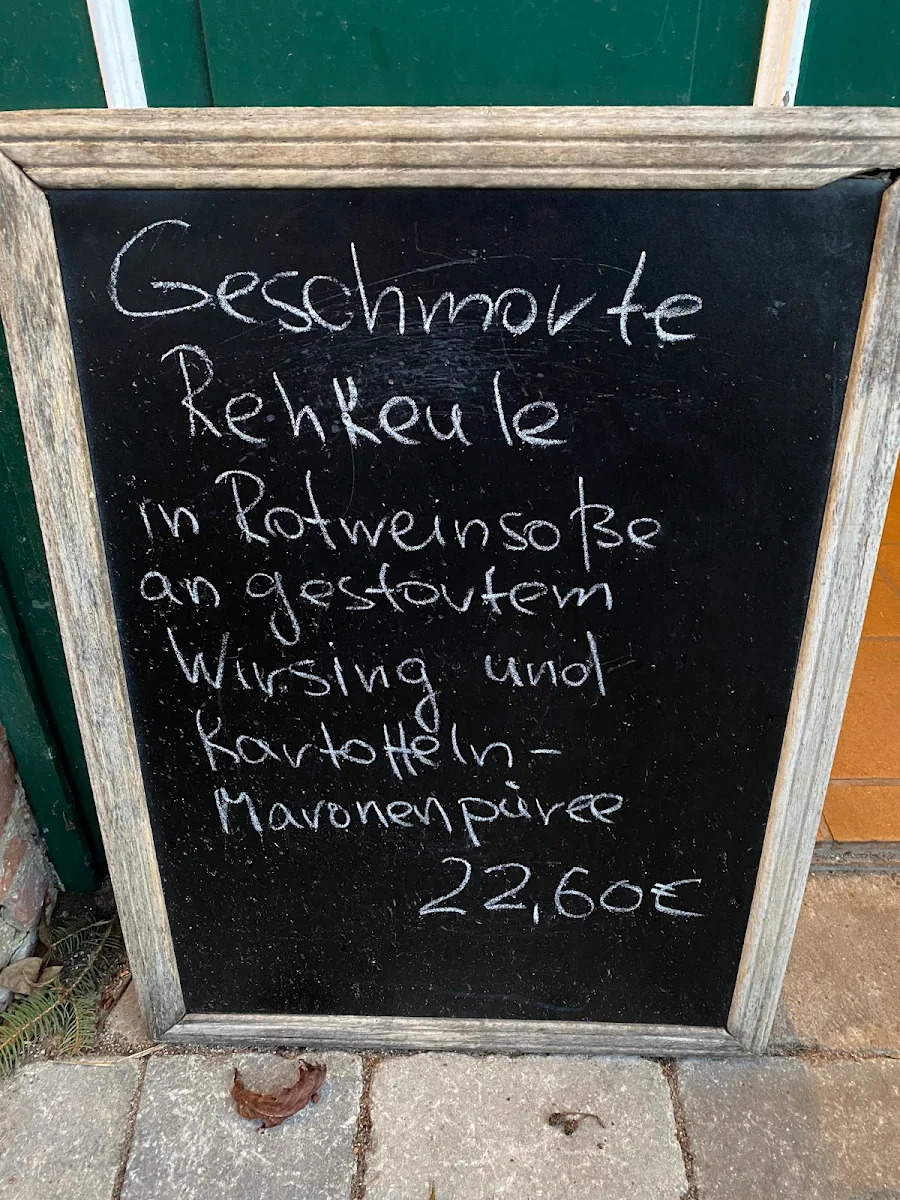 Geschmorte
Rehkeule
in Rotweinsoße
an gestovtem
Wirsing und
Kartoffeln-
Maronenpüree
22,60€